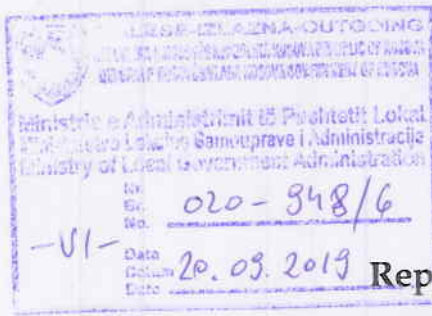 DALËSE-IZLAZNA-OUTGOING
Ministria e Administrimit të Pushtetit Lokal
Ministarstvo Lokalne Samouprave i Administracije
Ministry of Local Government Administration
Nr.
Br.
No. 020-948/6
-VI-
Data
Datum 20.09.2019 Rep
Date